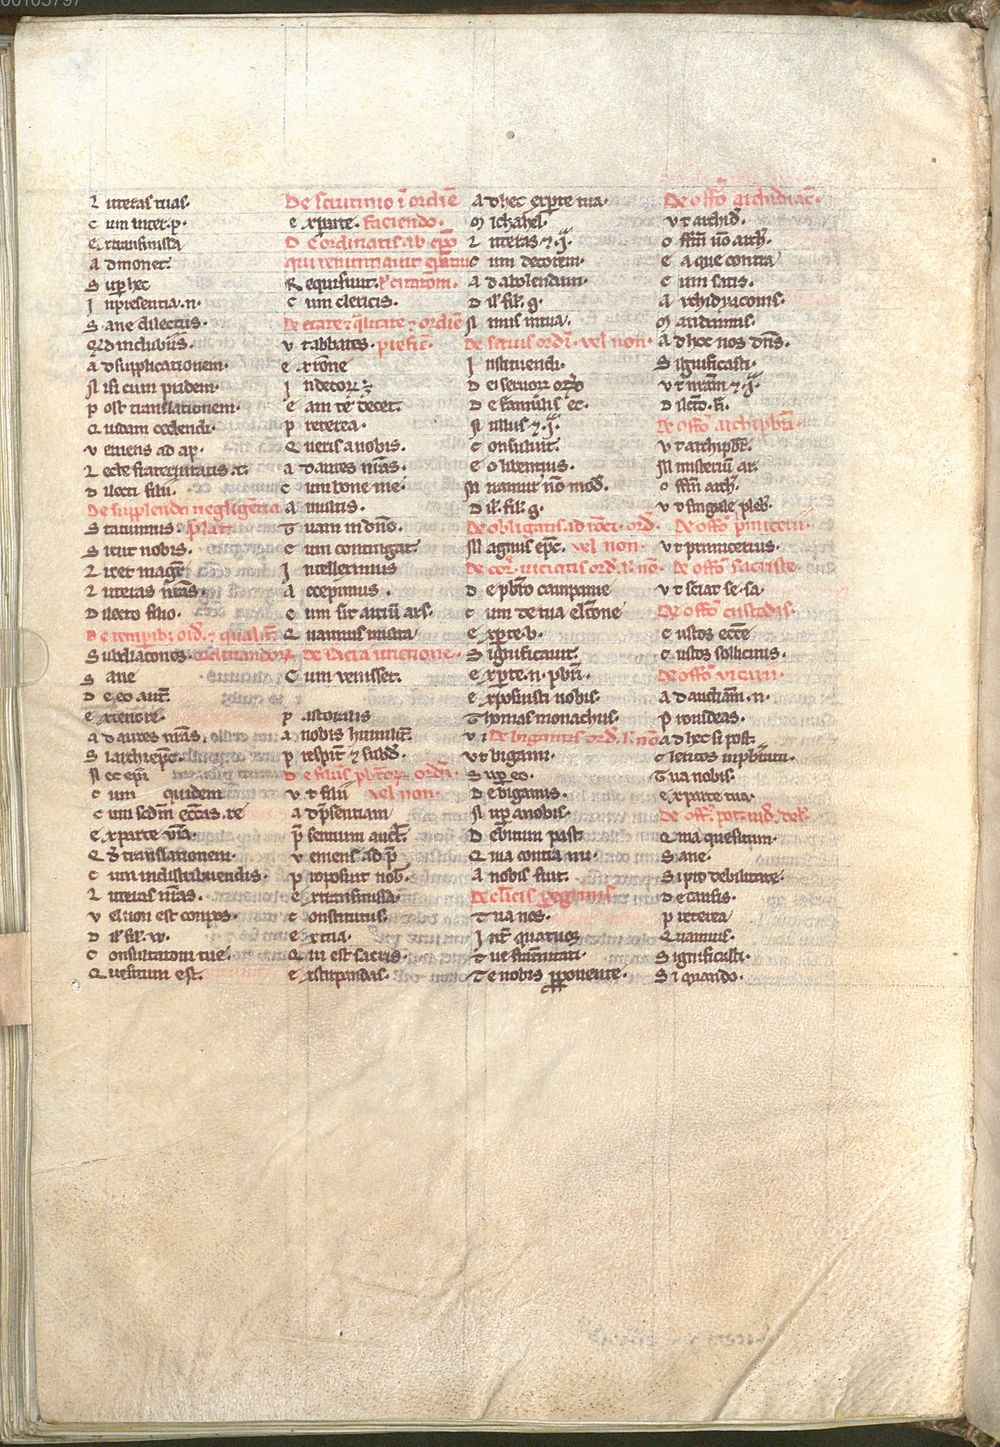 00105797
L itteras tuas.
C um inter .p.
E x transmissa
A dmonet.
S uper hec
I n presentia .n.
S ane dilectus.
Q d in dubiis.
A d supplicationem.
N isi cum pridem.
P ost translationem.
Q uidam cedendi.
V eniens ad ap.
L ecte fraternitatis .t.
D ilecti filii.
De supplenda negligentia
S tatuimus. prelat.
S icut nobis.
L icet magr
L itteras nras.
D ilecto filio.
De tempib; ord. 7 qualit.
S ubdiaconos. ordinandor
S ane
D e eo aut
E x tenore.
A d aures nras.
S i archiepc.
N ec epi
C um quidem
C um scdm eccas. te
E x parte vra.
Q translationem.
C um in distribuendis.
L itteras nras.
V el non est conpos.
D il. fil. vr.
C onsultationi tue
Q uesitum est.
De scrutinio i ordie
E x parte. faciendo.
De ordinatis ab epo
qui renuntiavit epatui
R equisivit.
C um clericis.
De etate 7 qlitate 7 ordie
V t abbates. prefic.
E x rone
I ndecor
E am te decet.
P reterea.
Q ueris a nobis.
A d aures nras.
C um bone me.
A multis.
T uam in dno.
C um contingat
I ntelleximus
A ccepimus.
C um sit artiu ars.
Q uamvis multa
De sacra unctione.
C um venisset.
P astoralis
A nobis humilit.
P respit 7 subd.
De filiis pbror ordi.
V t filii vel non.
A d psentiam
P sentium auct.
V eniens ad p
P roposuit nob.
E x transmissa
C onstitutus.
E x tua.
Q ui est sacris
E xstirpandas.
A d hec ex pte tua.
M ichahel.
L itteras 7 .i.
C um decorem.
A d abolendam.
D il. fil. g.
N imis in tua.
De servis ordi. vel non.
I nstituendi.
D e servor ordo
D e famulis ec.
N ullus 7 .i.
C onsuluit.
E o libentius.
M iramur no mod.
D il. fil. g.
De obligatis ad roci. ord.
M agnus epc. vel non.
De cor. viciatis ord. l. no
D e pbro campanie
C um de tua elcone
E x pte .b.
S ignificavit.
E x pte .n. pbri.
E xposuisti nobis.
T homas monachus.
De bigamis ord. l. no
V t bigami.
S uper eo.
D e bigamis.
N uper a nobis.
D ebitum past
Q uia contra mi.
A nobis fuit.
De clicis pegrinis
T ua nos.
I nt quatuor
T ue fraternitati.
T e nobis pponente.
De offo archidiac.
V t archid.
O ffm vo arch.
E a que contra
C um satis.
A rchidyaconis.
M andamus.
A d hoc nos dns.
S ignificasti.
V t nram 7 .i.
D ilcto. fi.
De offo archipbri.
V t archipbr.
M inisteriu ar.
O ffm arch.
V t singule pleb.
De offo primicerii.
V t primicerius.
De offo sacriste.
V t sciat se .sa.
De offo custodis.
C ustos ecce
C ustos sollicitus.
De offo vicarii.
A d audiam .n.
P rovideas.
A d hec si post.
C lericos in pbratu.
T ua nobis.
E x parte tua.
De off. pot. iud. del.
Q uia quesitum.
S ane.
S i pro debilitate.
D e causis.
P reterea
Q uamvis.
S ignificasti.
S i quando.